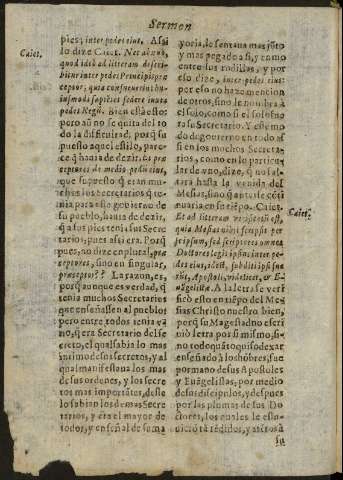 Sermon
pies; inter pedes eius. Assi
lo dize Caiet. Nec ab re est,
quod idem ad litteram descri-
bitur inter pedes Principis præ
ceptor; quia consueuerunt hu-
iusmodi sapiētes sedere iuxta
pedes Regū. Bien està esto:
pero aū no se quita del to
do la dificultad, porq̄ su
puesto aquel estilo, pare-
ce q̄ hauia de dezir. Et præ
ceptores de medio pedū eius,
que supuesto q̄ eran mu-
chos los Secretarios q̄ te-
nia para esto gobierno de
su pueblo, hauia de dezir,
q̄ a los pies tenia sus Secre
tarios; pues assi era. Porq̄
pues, no dize en plural, præ
ceptores, sino en singular,
præceptor? La razon, es,
porq̄ aunque es verdad, q̄
tenia muchos Secretarios
que enseñassen al pueblo:
pero entre todos tenia va
rio, q̄ era Secretario del se
creto, el qual sabia lo mas
intimo de sus secretos, y al
qual manifestaua los mas
de sus ordenes, y los secre
tos mas importātes, deste
lo sabian los demas Secre
tarios, y era el mayor de
todos, y en señal de su ma
Caiet.
yoria, le sentaua mas jūto
y mas pegado a si, y como
entre sus rodillas, y por
eso dize, inter pedes eius:
por eso no haze mencion
de otros, sino le nombra à
el solo, como si el solo fue
ra su Secretario. Y este mo
do de gouerno en todo as
si en los muchos Secreta-
rios, como en lo particu-
lar de vno, dize, q̄ no fal-
tara hasta la venida del
Mesias, sino q̄ antes se cōti
nuaria en su tiēpo. Caiet.
Et ad litteram verificatū est,
quia Mesias nihil scripsit per
se ipsum, sed scriptores omnes
Doctores legis ipsius inter pe-
des eius, idest, subditi ipsi fue
rūt, Apostoli, videlicet, & E-
uāgelistæ. A la letra se veri
ficò esto en tiēpo del Me-
sias Christo nuestro bien,
porq̄ su Magestad no escri
uiò letra por si mismo, si-
no todo quāto quiso dexar
enseñado à los hōbres, fue
por mano de sus Apostoles
y Euāgelistas, por medio
de sus dicipulos, y despues
por las plumas de sus Do-
ctores, los quales le estu-
uierō tā rēdidos, y atētos à
su
Caiet.